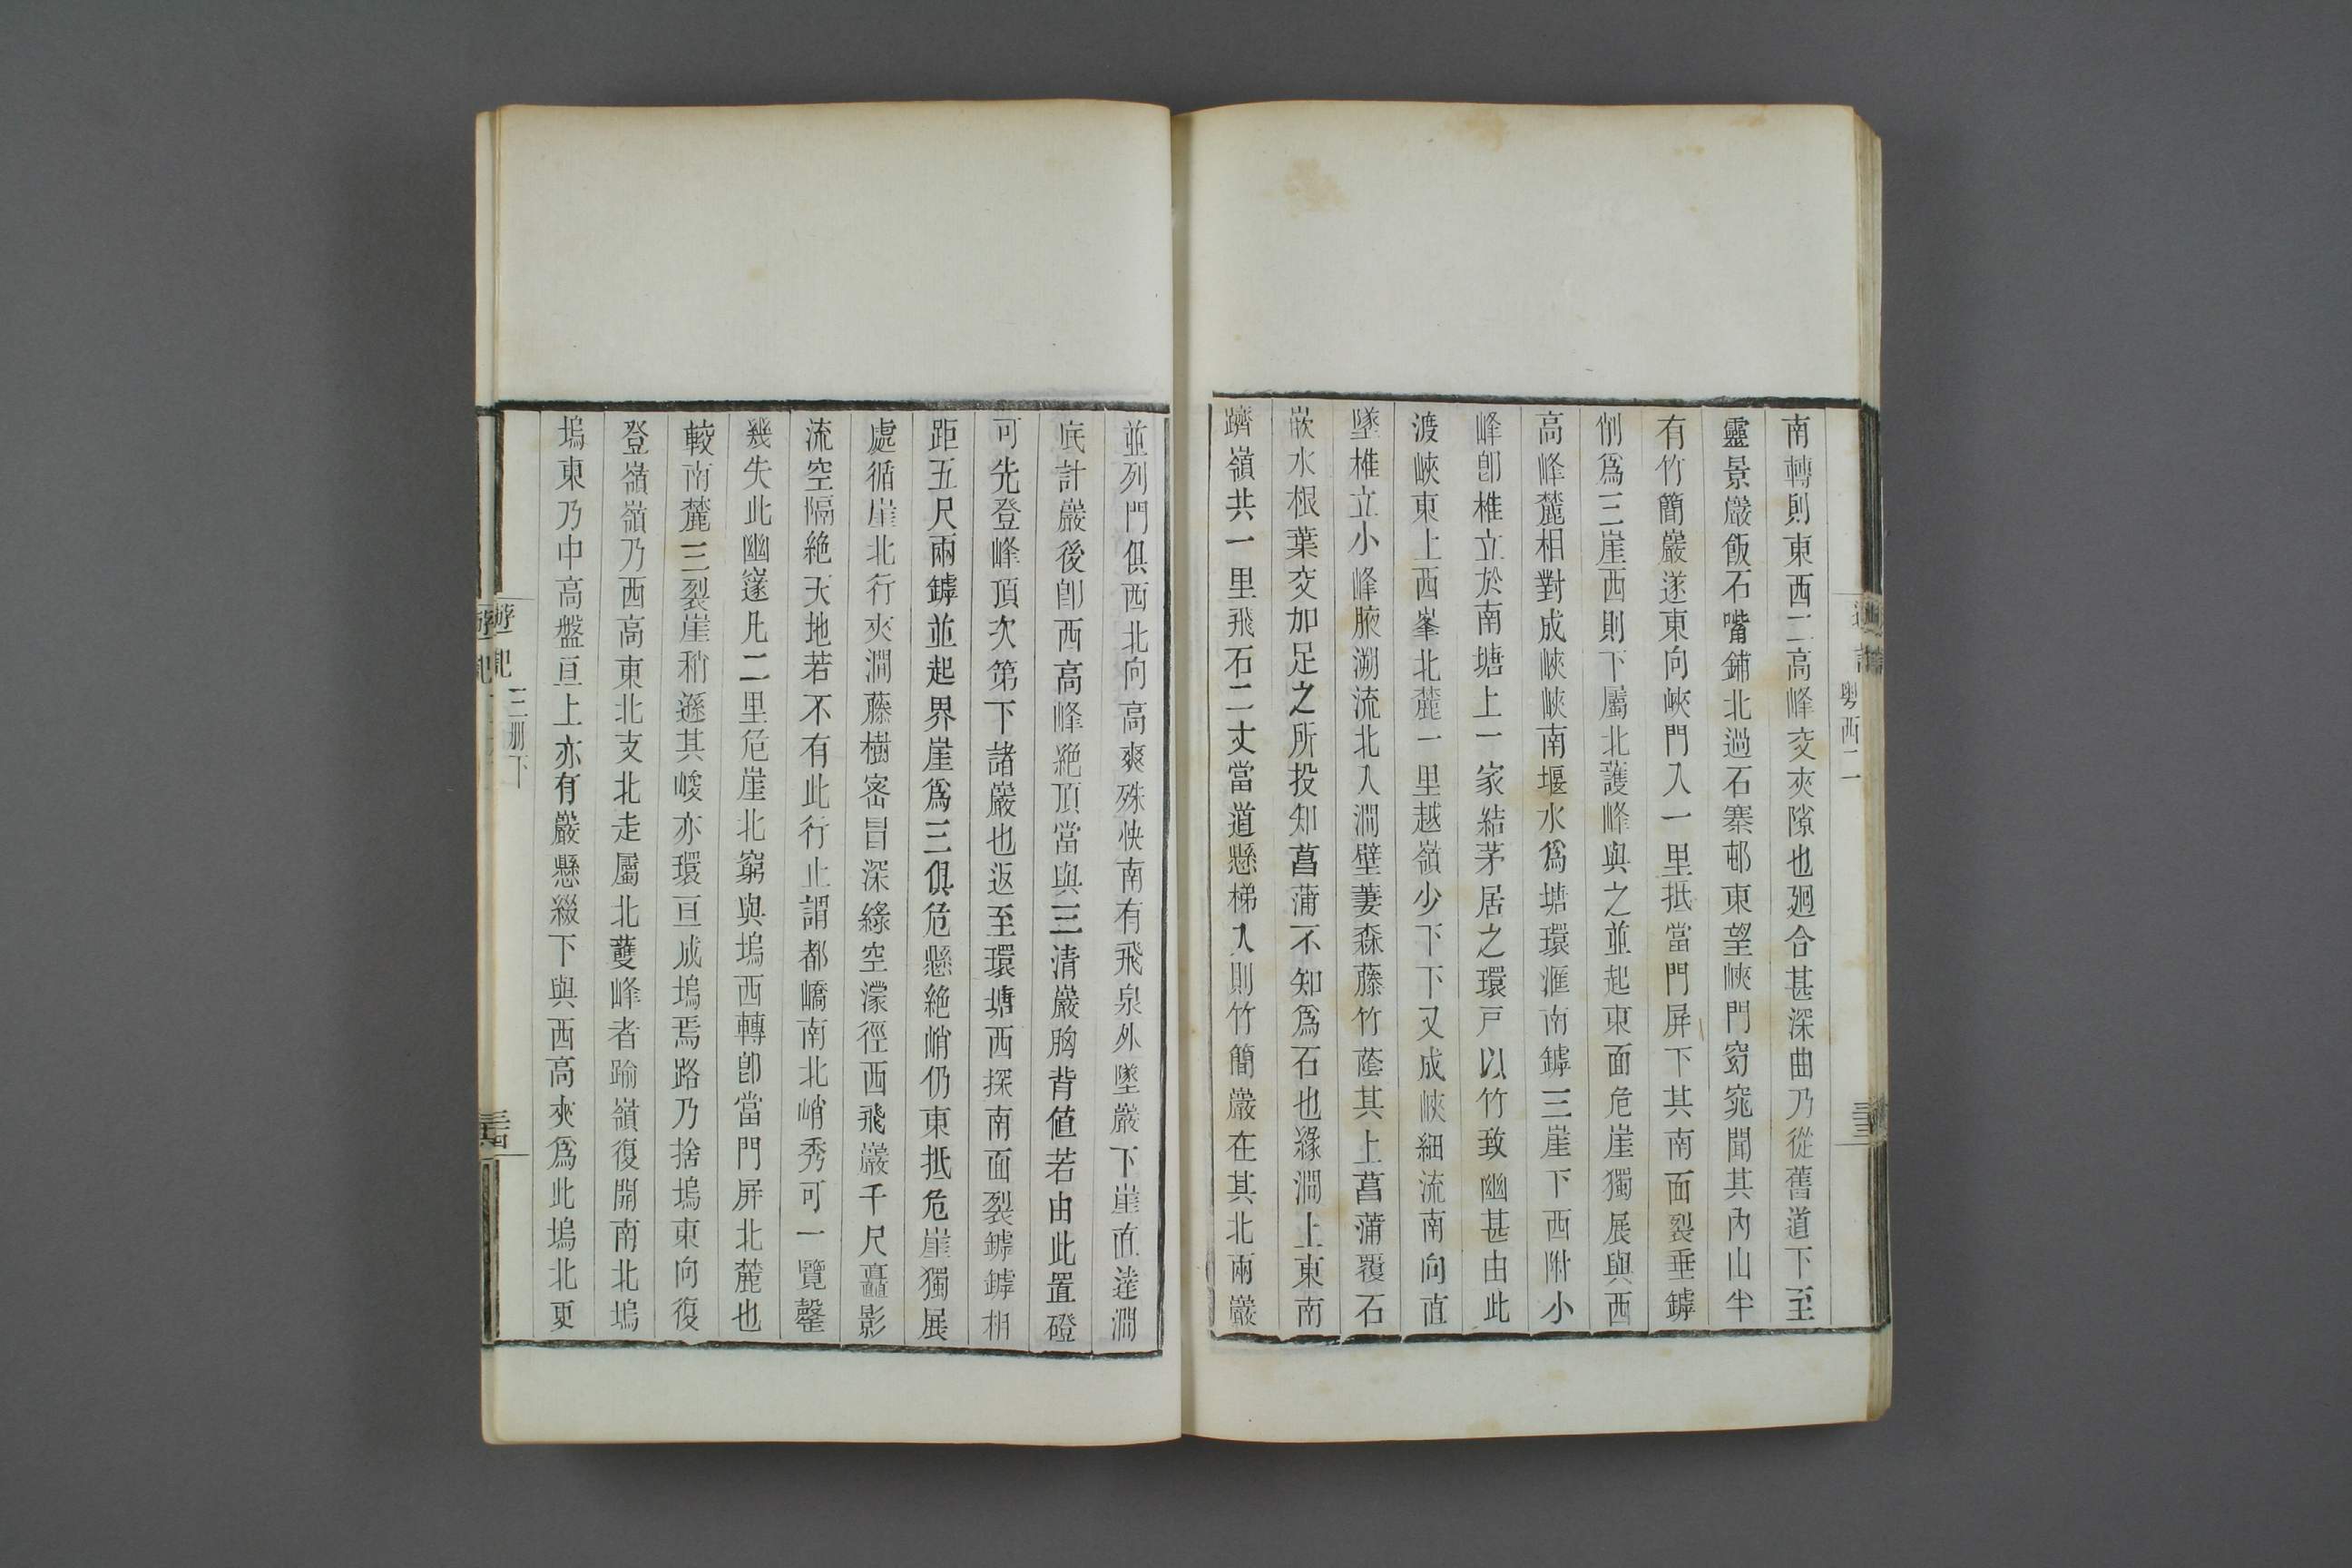 粤西二
三三
南轉則東西二高峰交夾隙也廻合甚深曲乃從舊道下至
靈景巖飯石嘴鋪北過石寨邨東望峽門窈窕聞其內山半
有竹簡巖遂東向峽門入一里抵當門屏下其南面裂垂罅
削爲三崖西則下屬北護峰與之並起東面危崖獨展與西
高峰麓相對成峽峽南堰水爲塘環滙南罅三崖下西附小
峰卽椎立於南塘上一家結茅居之環戸以竹致幽甚由此
渡峽東上西峯北麓一里越嶺少下下又成峽細流南向直
墜椎立小峰腋溯流北入澗壁萋森藤竹蔭其上菖蒲覆石
嵌水根葉交加足之所投知菖蒲不知爲石也緣澗上東南
躋嶺共一里飛石二丈當道懸梯入則竹簡巖在其北兩巖
並列門俱西北向高爽殊快南有飛泉外墜巖下崖直達澗
底計巖後卽西高峰絶頂當與三清巖胸背値若由此置磴
可先登峰頂次第下諸巖也返至環塘西探南面裂罅罅相
距五尺兩罅並起界崖爲三俱危懸絶峭仍東抵危崖獨展
處循崖北行夾澗藤樹密冒深緣空濛徑西飛巖千尺矗影
流空隔絶天地若不有此行止謂都嶠南北峭秀可一覽罄
幾失此幽邃凡二里危崖北窮與塢西轉卽當門屏北麓也
較南麓三裂崖稍遜其峻亦環亘成塢焉路乃捨塢東向復
登嶺嶺乃西高東北支北走屬北䕶峰者踰嶺復開南北塢
塢東乃中高盤亘上亦有巖懸綴下與西高夾爲此塢北更
遊記
三册下
三十四